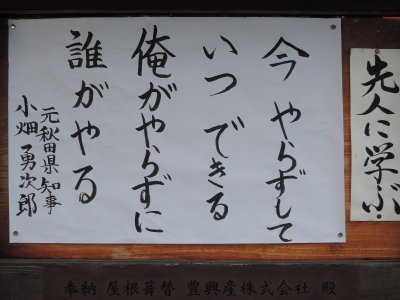 先人に学ぶ
今やらずして
いつできる
俺がやらずに
誰がやる
元秋田県知事
小畑勇次郎
奉納 屋根葺替 豊興産株式会社 殿